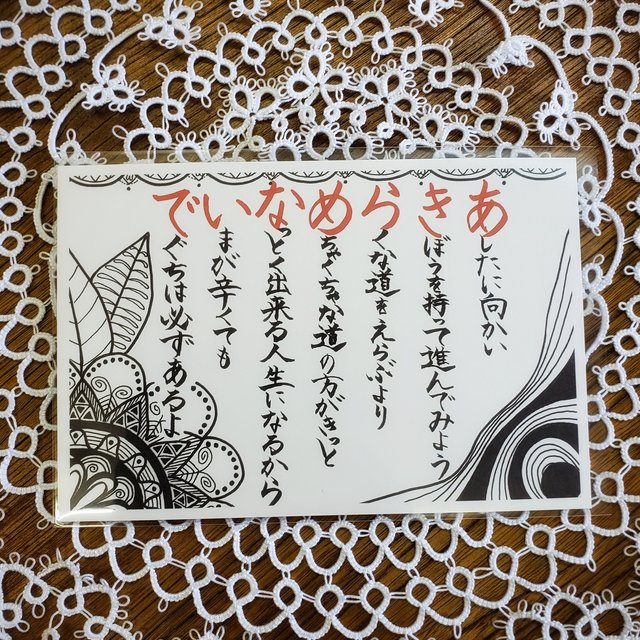 あしたに向かい
きぼうを持って進んでみよう
らくな道をえらぶより
めちゃくちゃな道の方がきっと
なっとく出来る人生になるから
いまが辛くても
でぐちは必ずあるよ